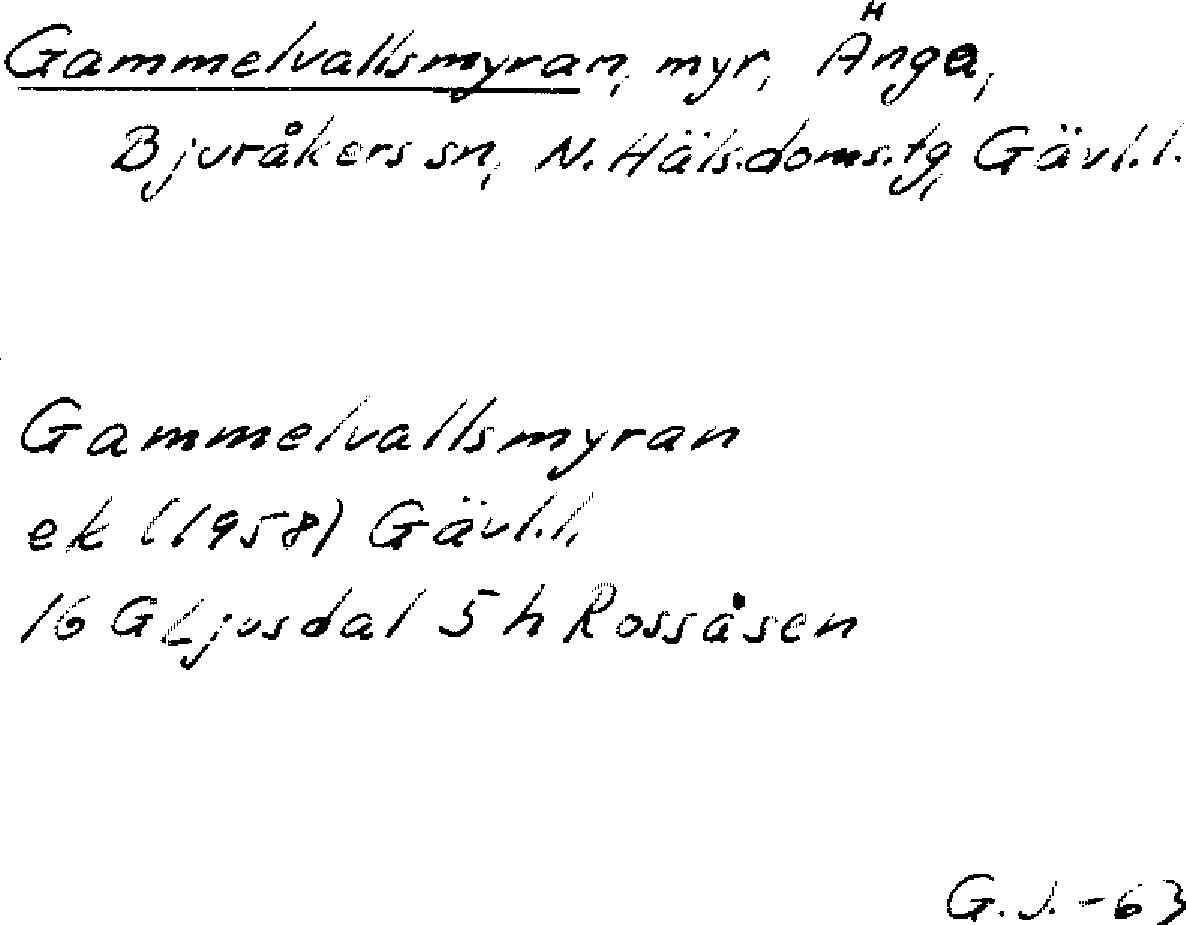 Gammelvallsmyran, myr, Änga,
Bjuråkers sn, N. Häls.doms.tg, Gävl.l.
Gammelvallsmyran
ek (1958) Gävl.l.
16 G Ljusdal 5 h Rossåsen
G.J.-63